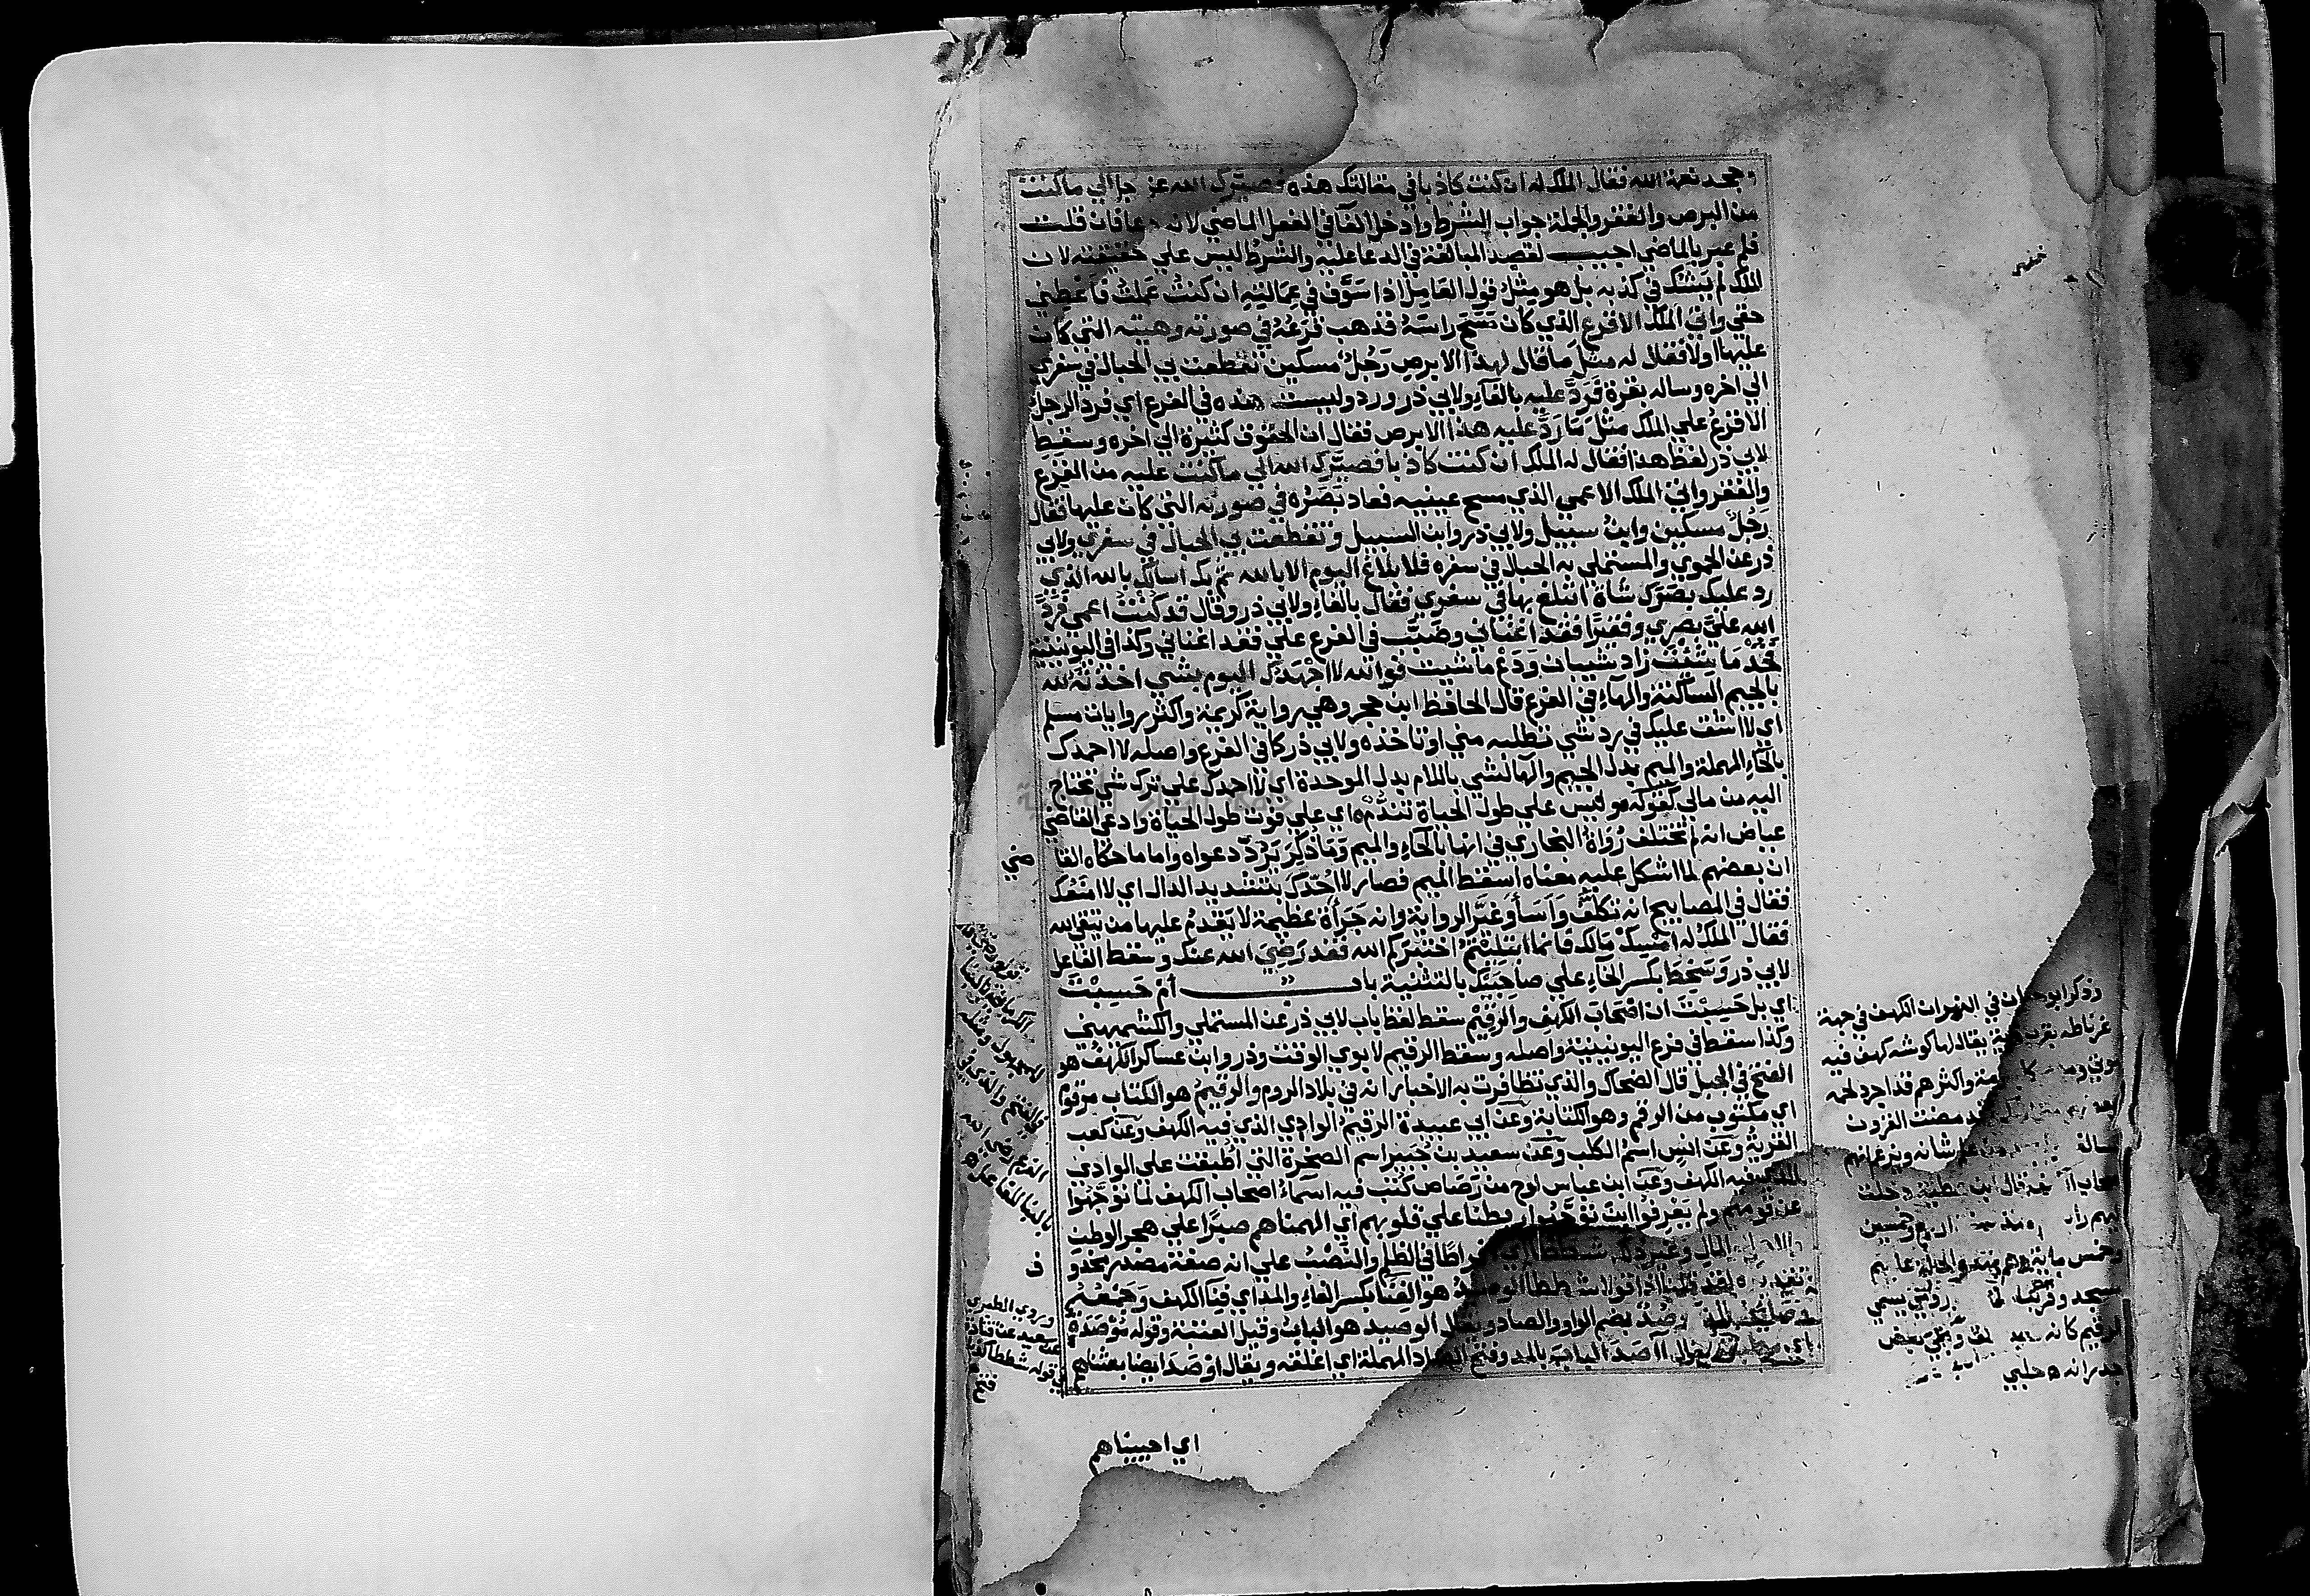 وجحد نعمة الله فقال الملك له ان كنت كاذبا في مقالتك هذه فصيرك الله عز وجل الي ما كنت
من البرص والفقر والجملة جواب الشرط وادخل الفا في الفعل الماضي لانه دعا فان قلت
فلم عبر بالماضي اجيب لقصد المبالغة في الدعا عليه والشرط ليس علي حقيقته لان
الملك لم يشك في كذبه بل هو مثل قول العامل اذا سوف في عمالته ان كنت عملت فاعطني
حقي واتي الملك الاقرع الذي كان مسح راسه فذهب قرعه في صورته وهيته التي كان
عليها اولا فقال له مثل ما قال لهذا الابرص رجل مسكين تقطعت بي الحبال في سفري
الي اخره وساله بقرة فرد عليه بالفاء ولابي ذر ورد وليست هذه في الفرع اي فرد الرجل
الاقرع علي الملك مثل ما رد عليه هذا الابرص فقال ان الحقوق كثيرة الي اخره وسقط
لابي ذر لفظ هذا فقال له الملك ان كنت كاذبا فصيرك الله الي ما كنت عليه من القرع
والفقر واتي الملك الاعمي الذي مسح عينيه فعاد بصره في صورته التي كان عليها فقال
رجل مسكين وابن سبيل ولابي ذر وابن السبيل وتقطعت بي الحبال في سفري ولابي
ذر عن الحموي والمستملي به الحبال في سفره فلا بلاغ اليوم الا بالله ثم بك اسالك بالله الذي
رد عليك بصرك شاة اتبلغ بها في سفري فقال بالفاء ولابي ذر وقال قد كنت اعمي فرد
الله علي بصري وفقيرا فقد اغناني وضبب في الفرع علي فقد اغناني وكذا في اليونينية
فخذ ما شئت زاد شيبان ودع ما شيت فوالله لا اجهدك اليوم بشي اخذته لله
بالجيم الساكنة والهاء في الفرع قال الحافظ ابن حجر وهي رواية كريمة واكثر روايات مسلم
اي لا اشق عليك في رد شي تطلبه مني او تاخذه ولابي ذر كا في الفرع واصله لا احمدك
بالحاء المهملة والميم بدل الجيم والها لشي باللام بدل الموحدة اي لا احمدك علي ترك شي تحتاج
اليه من مالي كقوله وليس علي طول الحياة تندم اي علي فوت طول الحياة وادعي القاضي
عياض انه لم تختلف رواة البخاري في انها بالحاء والميم وما ذكر يرد دعواه واما ما حكاه القا
ضي
ان بعضهم لما اشكل عليه معناه اسقط الميم فصار لا احدك بتشديد الدال اي لا امنعك
فقال في المصابيح انه تكلف واسا وغير الرواية وانه جراة عظيمة لا يقدم عليها من يتقي الله
فقال الملك له امسك مالك فانما ابتليتم اختبركم الله فقد رضي الله عنك وسقط الفاعل
لابي ذر وسخط بكسر الخاء علي صاحبيك بالتثنية باب ام حسبت
اي بل حسبت ان اصحاب الكهف والرقيم سقط لفظ باب لابي ذر عن المستملي والكشميهني
وكذا سقط في فرع اليونينية واصله وسقط الرقيم لابوي الوقت وذر وابن عساكر الكهف هو
الفتح في الجبل قال الضحاك والذي تظافرت به الاخبار انه في بلاد الروم والرقيم هو الكتاب مرقوم
اي مكتوب من الرقم وهو الكتابة وعن ابي عبيدة الرقيم الوادي الذي فيه الكهف وعن كعب
القرية وعن انس اسم الكلب وعن سعيد بن جبير اسم الصخرة التي اطبقت علي الوادي
فيه الكهف وعن ابن عباس لوح من رصاص كتب فيه اسماء اصحاب الكهف لما توجهوا
عن قومهم ولم يعرفوا اين توجهوا ربطنا علي قلوبهم اي الهمناهم صبرا علي هجر الوطن
المال وغير ذلك شططا اي افراطا في الظلم والنصب علي انه صفة مصدر محذو
ف
لقد قلنا اذا قولا شططا الوصيد هو الفنا بكسر الفاء والمد اي فنا الكهف وجمعه
وصايد ووصد بضم الواو والصاد ويقال الوصيد هو الباب وقيل العتبة وقوله مؤصدة
يقال آصد الباب بالمد وفتح الصاد المهملة اي اغلقه ويقال اوصد ايضا بعثناهم
اي احييناهم
وذكر ابو حيان في النهر ان الكهف في جهة
غرناطة بقرب قرية يقال لها لوشه كهف فيه
موتي
واكثرهم قد انجرد لحمه
مضت القرون
السالفة
قال ابن عطية دخلت
مسجد
الرقيم كانه
بعض
جدرانه حلبي
وروي الطبري
عن سعيد عن قتادة
في قوله شططا كذبا
فتح